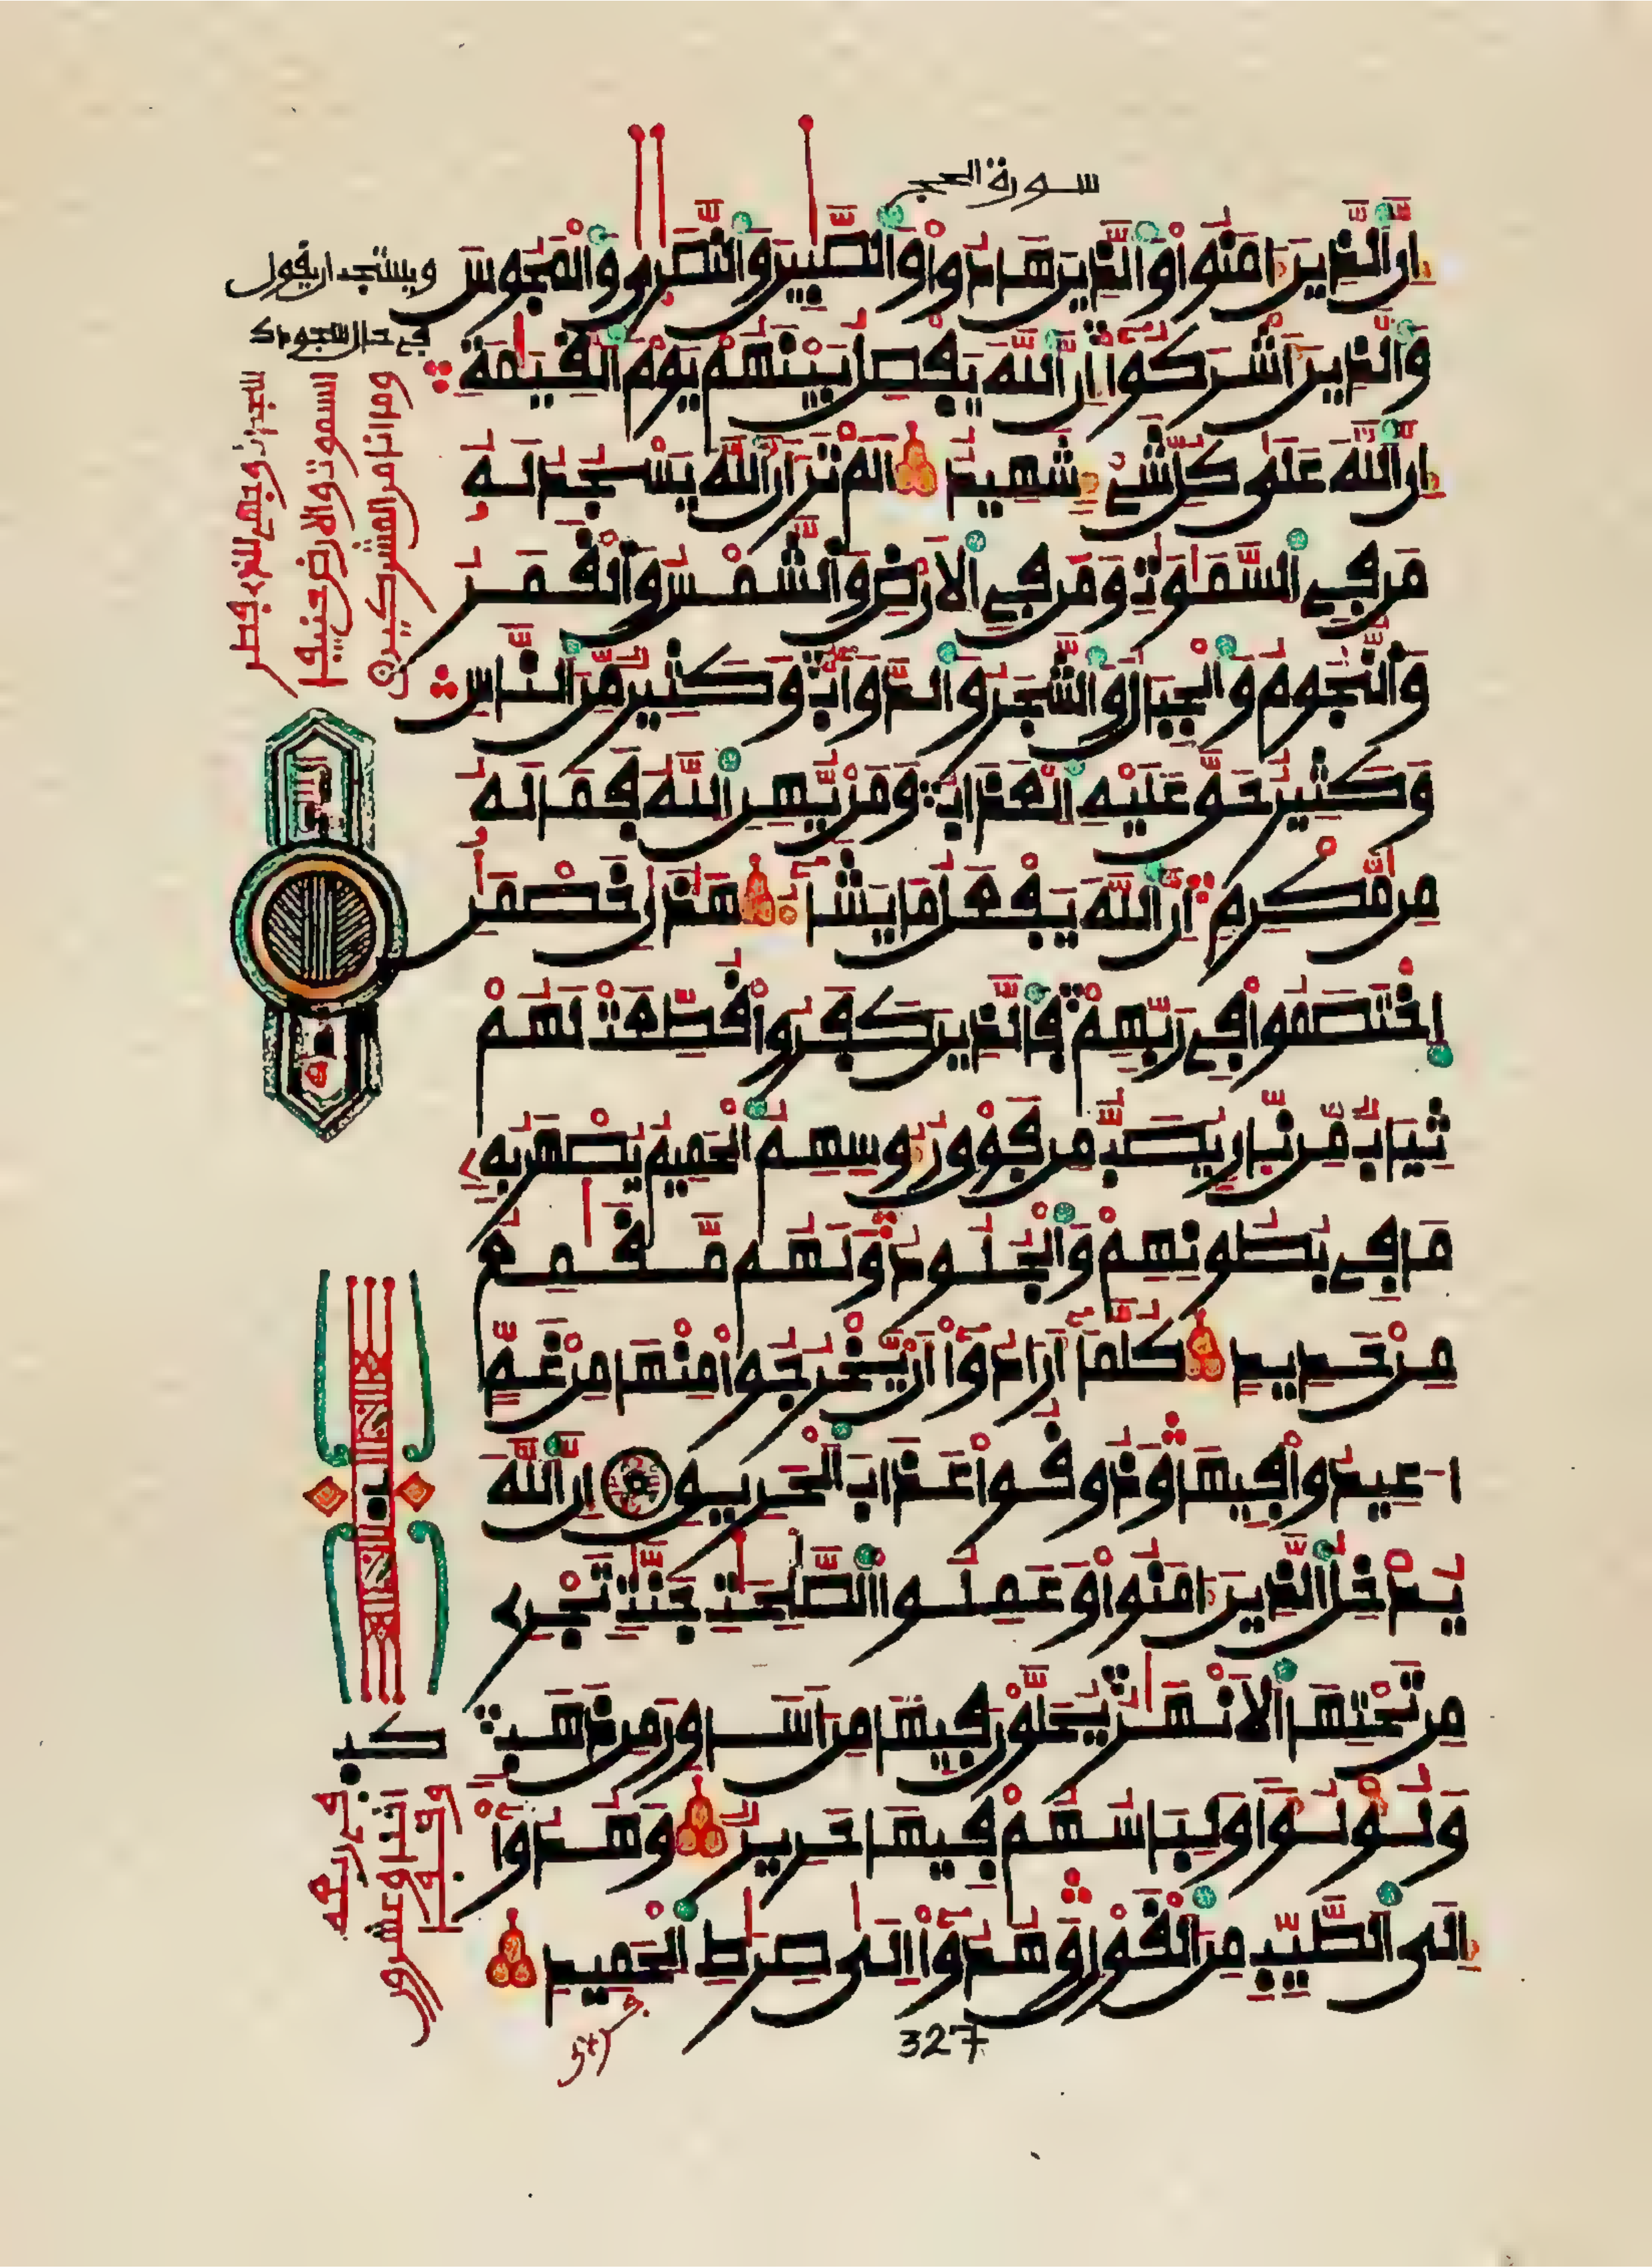 سورة الحج
إن الذين ءامنوا والذين هادوا والصبين والنصرى والمجوس
والذين أشركوا إن الله يفصل بينهم يوم القيمة
إن الله على كل شىء شهيد الم تر أن الله يسجد له
من في السموت ومن في الارض والشمس والقمر
والنجوم والجبال والشجر والدواب وكثير من الناس
وكثير حق عليه العذاب ومن يهن الله فما له
من مكرم إن الله يفعل ما يشاء هذن خصمن
اختصموا في ربهم فالذين كفروا قطعت لهم
ثياب من نار يصب من فوق رءوسهم الحميم يصهر به
ما في بطونهم والجلود ولهم مقمع
من حديد كلما أرادوا أن يخرجوا منها من غم
اعيدوا فيها وذوقوا عذاب الحريق إن الله
يدخل الذين ءامنوا وعملوا الصلحت جنت تجري
من تحتها الانهر يحلون فيها من أساور من ذهب
ولؤلؤا ولباسهم فيها حرير وهدوا
إلى الطيب من القول وهدوا إلى صرط الحميد
ويستحب ان يقول
في حال سجودك
وجهي للذي فطر
السموت والارض حنيفا
وما انا من المشركين
كب
اثنان وعشرون
327